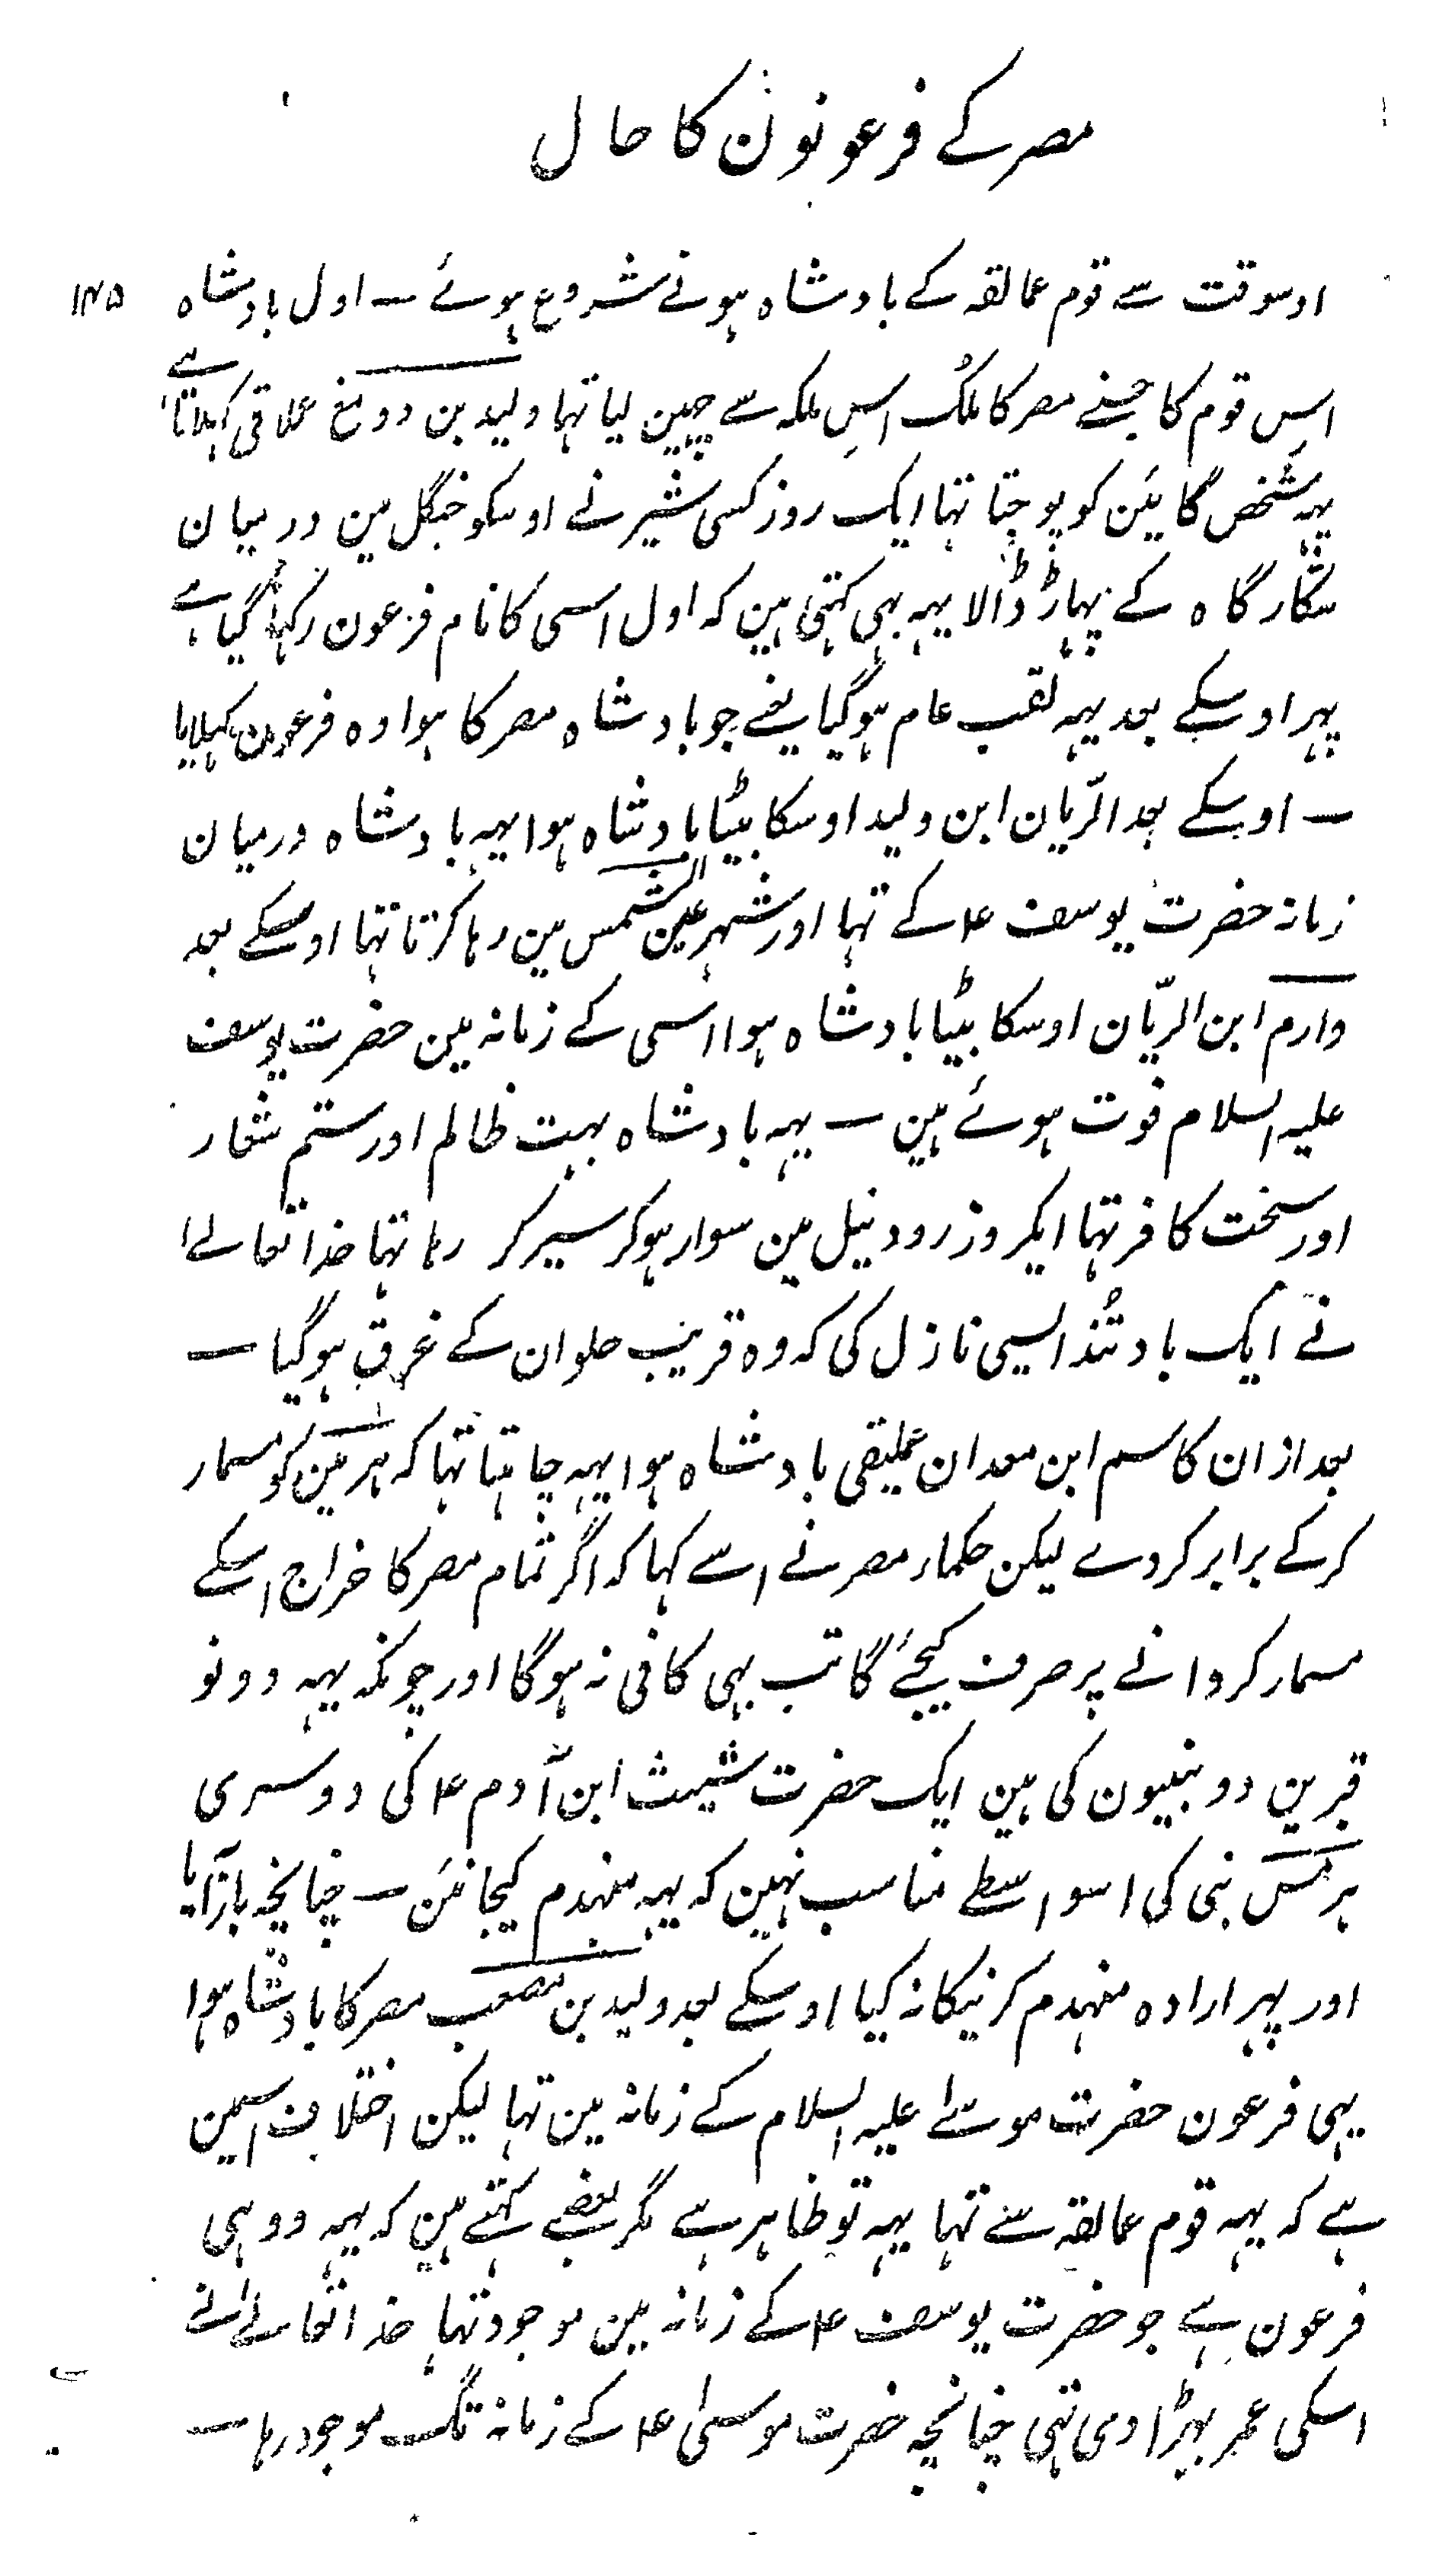 مصر کے فرعونون کا حال
اوسوقت سے قوم عمالقہ کے بادشاہ ہونے شروع ہوئے — اول بادشاہ ۱۴۵
اس قوم کا جسنے مصر کا ملک اس ملکہ سے چہین لیا تہا ولید بن دومغ عملاقی کہلاتا ہے
یہہ شخص گائین کو پوجتا تہا ایک روز کسی شیر نے اوسکو جنگل مین درمیان
شکار گاہ کے پہاڑ ڈالا یہہ بہی کہتی ہین کہ اول اسی کا نام فرعون رکہا گیا ہے
پہر اوسکے بعد یہہ لقب عام ہوگیا یعنے جو بادشاہ مصر کا ہوا وہ فرعون کہلایا
— اوسکے بعد الرّیان ابن ولید اوسکا بیٹا بادشاہ ہوا یہہ بادشاہ درمیان
زمانہ حضرت یوسف ۴ کے تہا اور شہر عین الشمس مین رہا کرتا تہا اوسکے بعد
دارم ابن الریّان اوسکا بیٹا بادشاہ ہوا اسی کے زمانہ مین حضرت یوسف
علیہ السلام فوت ہوئے ہین — یہہ بادشاہ بہت ظالم اور ستم شعار
اور سخت کافر تہا ایکروز رود نیل مین سوار ہوکر سیر کر رہا تہا خدا تعالے
نے ایک باد تُند ایسی نازل کی کہ وہ قریب حلوان کے غرق ہوگیا —
بعد ازان کاسم ابن معدان عملیقی بادشاہ ہوا یہہ چاہتا تہا کہ ہرمین کو مسمار
کرکے برابر کردے لیکن حکماء مصر نے اسے کہا کہ اگر تمام مصر کا خراج اسکے
مسمار کروانے پر صرف کیجئے گا تب بہی کافی نہ ہوگا اور چونکہ یہہ دونو
قبرین دو نبیون کی ہین ایک حضرت شیث ابن آدم ۴ کی دوسری
ہرمس نبی کی اسواسطے مناسب نہین کہ یہہ منہدم کیجائین — چنانچہ باز آیا
اور پہر ارادہ منہدم کرنیکا نہ کیا اوسکے بعد ولید بن مصعب مصر کا بادشاہ ہوا
یہی فرعون حضرت موسےٰ علیہ السلام کے زمانہ مین تہا لیکن اختلاف اسمین
ہے کہ یہہ قوم عمالقہ سے تہا یہہ تو ظاہر ہے مگر بعضے کہتے ہین کہ یہہ وہ ہی
فرعون ہے جو حضرت یوسف ۴ کے زمانہ مین موجود تہا خدا تعالےٰ نے
اسکی عمر بہڑا دی تہی چنانچہ حضرت موسیٰ ۴ کے زمانہ تک موجود رہا —